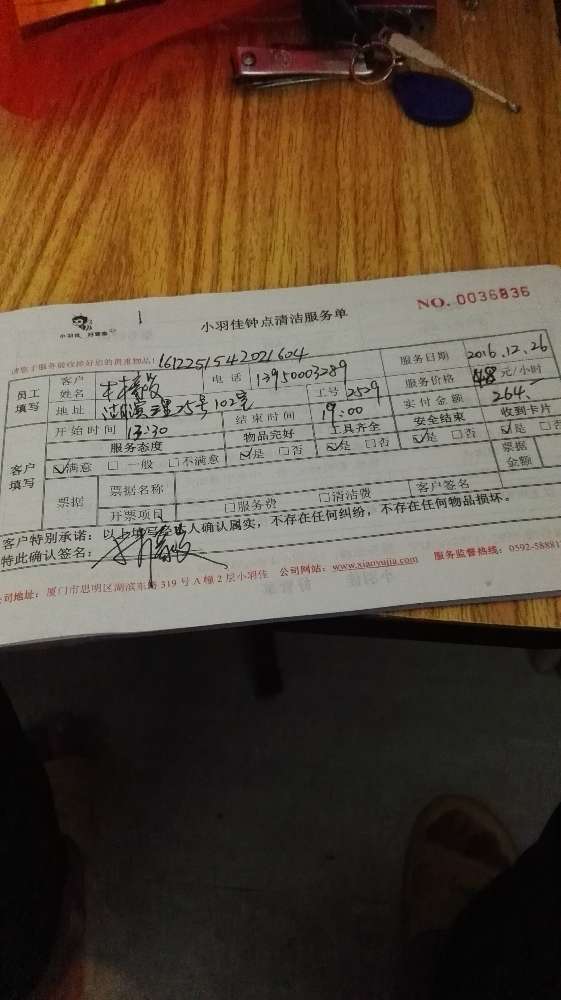 小羽佳 好管家
小羽佳钟点清洁服务单
NO. 0036836
请您于服务前收捡好您的贵重物品！ 1612251542021604
员工填写 客户姓名 电话 13950003289 服务日期 2016.12.26
地址 25号102室 工号 2529 服务价格 48 元/小时
开始时间 13:30 结束时间 19:00 实付金额 264.
客户填写 服务态度 物品完好 工具齐全 安全结束 收到卡片
☑满意 □一般 □不满意 ☑是 □否 ☑是 □否 ☑是 □否 ☑是 □否
票据 票据名称 票据金额
开票项目 □服务费 □清洁费 客户签名
客户特别承诺：以上填写经本人确认属实，不存在任何纠纷，不存在任何物品损坏。
特此确认签名：
公司地址：厦门市思明区湖滨东路319号A幢2层小羽佳 公司网站：www.xiaoyujia.com 服务监督热线：0592-58881